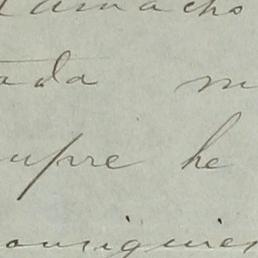 amacho
ada m
upre he
onsiguien